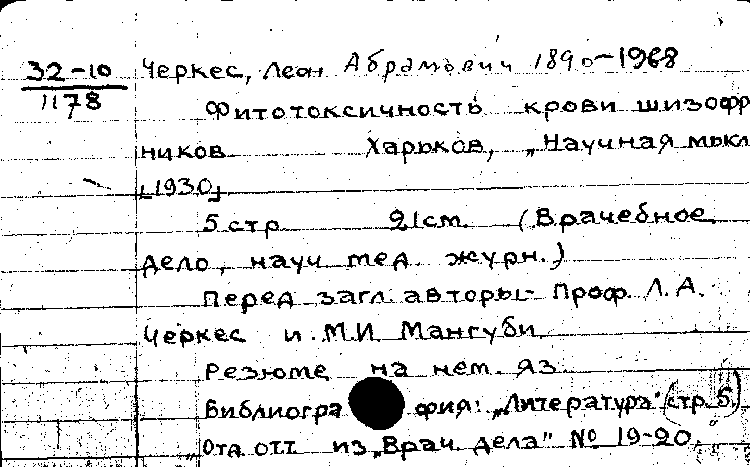 32-10
1178
Черкес, Леон Абрамович 1890-1968
Фитотоксичность крови шизофр
ников Харьков, „Научная мысл
[1930]
5 стр 21см. (Врачебное
дело, науч мед. журн.)
Перед загл. авторы: Проф. Л. А.
Черкес и М.И. Мангуби
Резюме на нем. яз
Библиогра фия: „Литература" (стр. 5)
„Отд. отт из „Врач. дела" № 19-20."